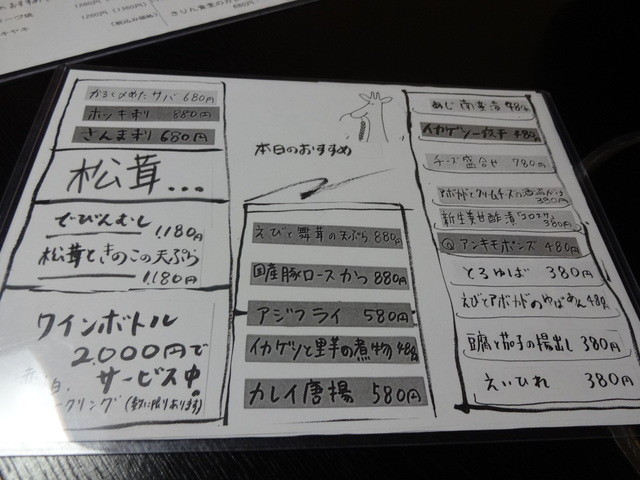 かるくしめたサバ 680円
ホッキ刺 880円
さんま刺 680円
松茸...
でびんむし 1,180円
松茸ときのこの天ぷら
1,180円
ワインボトル
2,000円で
赤.白. サービス中!
ークリング (数に限りあります)
本日のおすすめ
えびと舞茸の天ぷら 880円
国産豚ロースかつ 880円
アジフライ 580円
イカゲソと里芋の煮物 480
カレイ唐揚 580円
あじ南蛮漬 480
イカゲソ 480
チーズ盛合せ 780円
アボカドとクリームチーズの
380円
新生姜甘酢漬
380円
アンキモポンズ 480円
とろゆば 380円
えびとアボカドのゆばあん 480
豆腐と茄子の揚出し 380円
えいひれ 380円